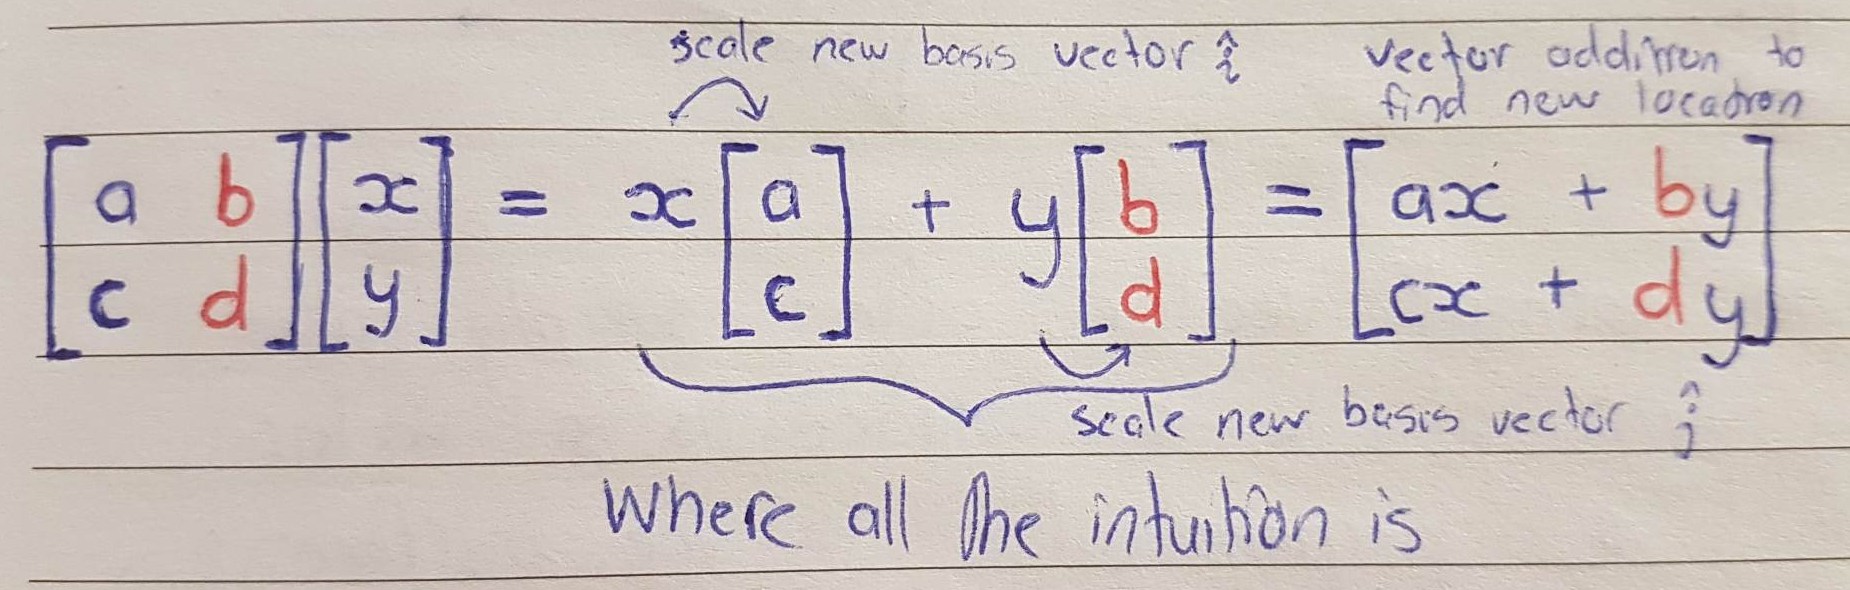 scale new basis vector î
vector addition to
find new location
[a b] [x] = x [a] + y [b] = [ax + by]
[c d] [y] [c] [d] [cx + dy]
scale new basis vector ĵ
Where all the intuition is